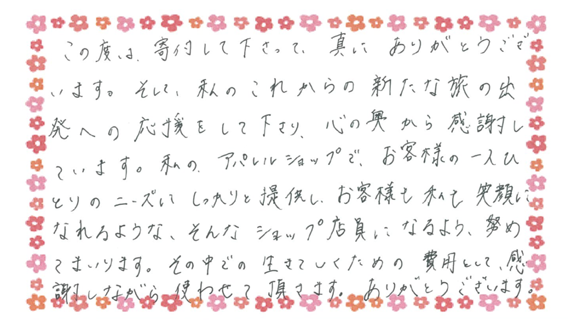 この度は、寄付して下さって、真に ありがとうござ
います。そして、私のこれからの新たな旅の出
発への応援をして下さり、心の奥から感謝し
ています。私の、アパレルショップで、お客様の一人ひ
とりのニーズにしっかりと提供し、お客様も私も笑顔に
なれるような、そんなショップ店員になるよう、努め
てまいります。その中での生きてしくための費用として、感
謝しながら使わせて頂きます。ありがとうございます。